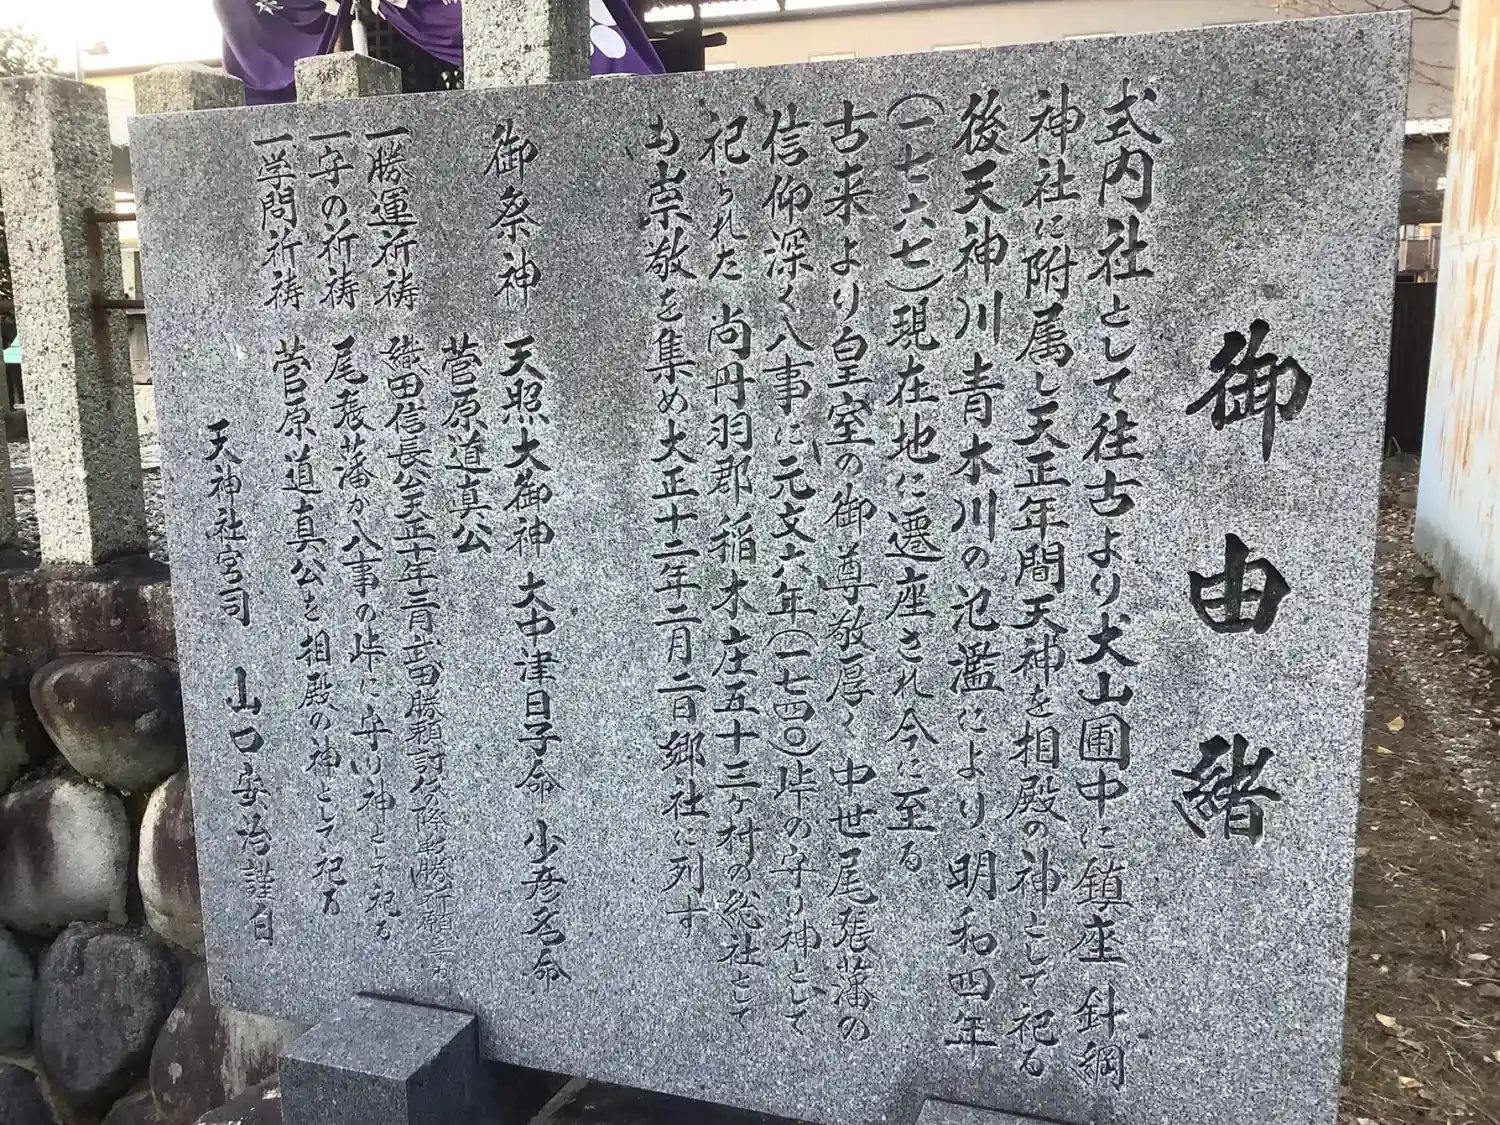 御由緒
式内社として往古より犬山圃中に鎮座 針綱
神社に附属し天正年間天神を相殿の神として祀る
後天神川青木川の氾濫により、明和四年
(一七六七)現在地に遷座され今に至る
古来より皇室の御尊敬厚く 中世尾張藩の
信仰深く八事に元文六年(一七四〇)峠の守り神として
祀られた 尚丹羽郡稲木庄五十三ヶ村の総社として
崇敬を集め大正十二年二月二日郷社に列す
御祭神 天照大御神 大中津日子命 少彦名命
菅原道真公
一勝運祈祷 織田信長公天正十年三月武田勝頼討伐の際戦勝祈願
一守の祈祷 尾張藩が八事の峠に守り神として祀る
一学問祈祷 菅原道真公を相殿の神として祀る
天神社宮司 山口安治謹白